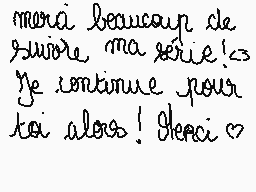 merci beaucoup de
suivre ma série! <3
Je continue pour
toi alors! Merci ♡